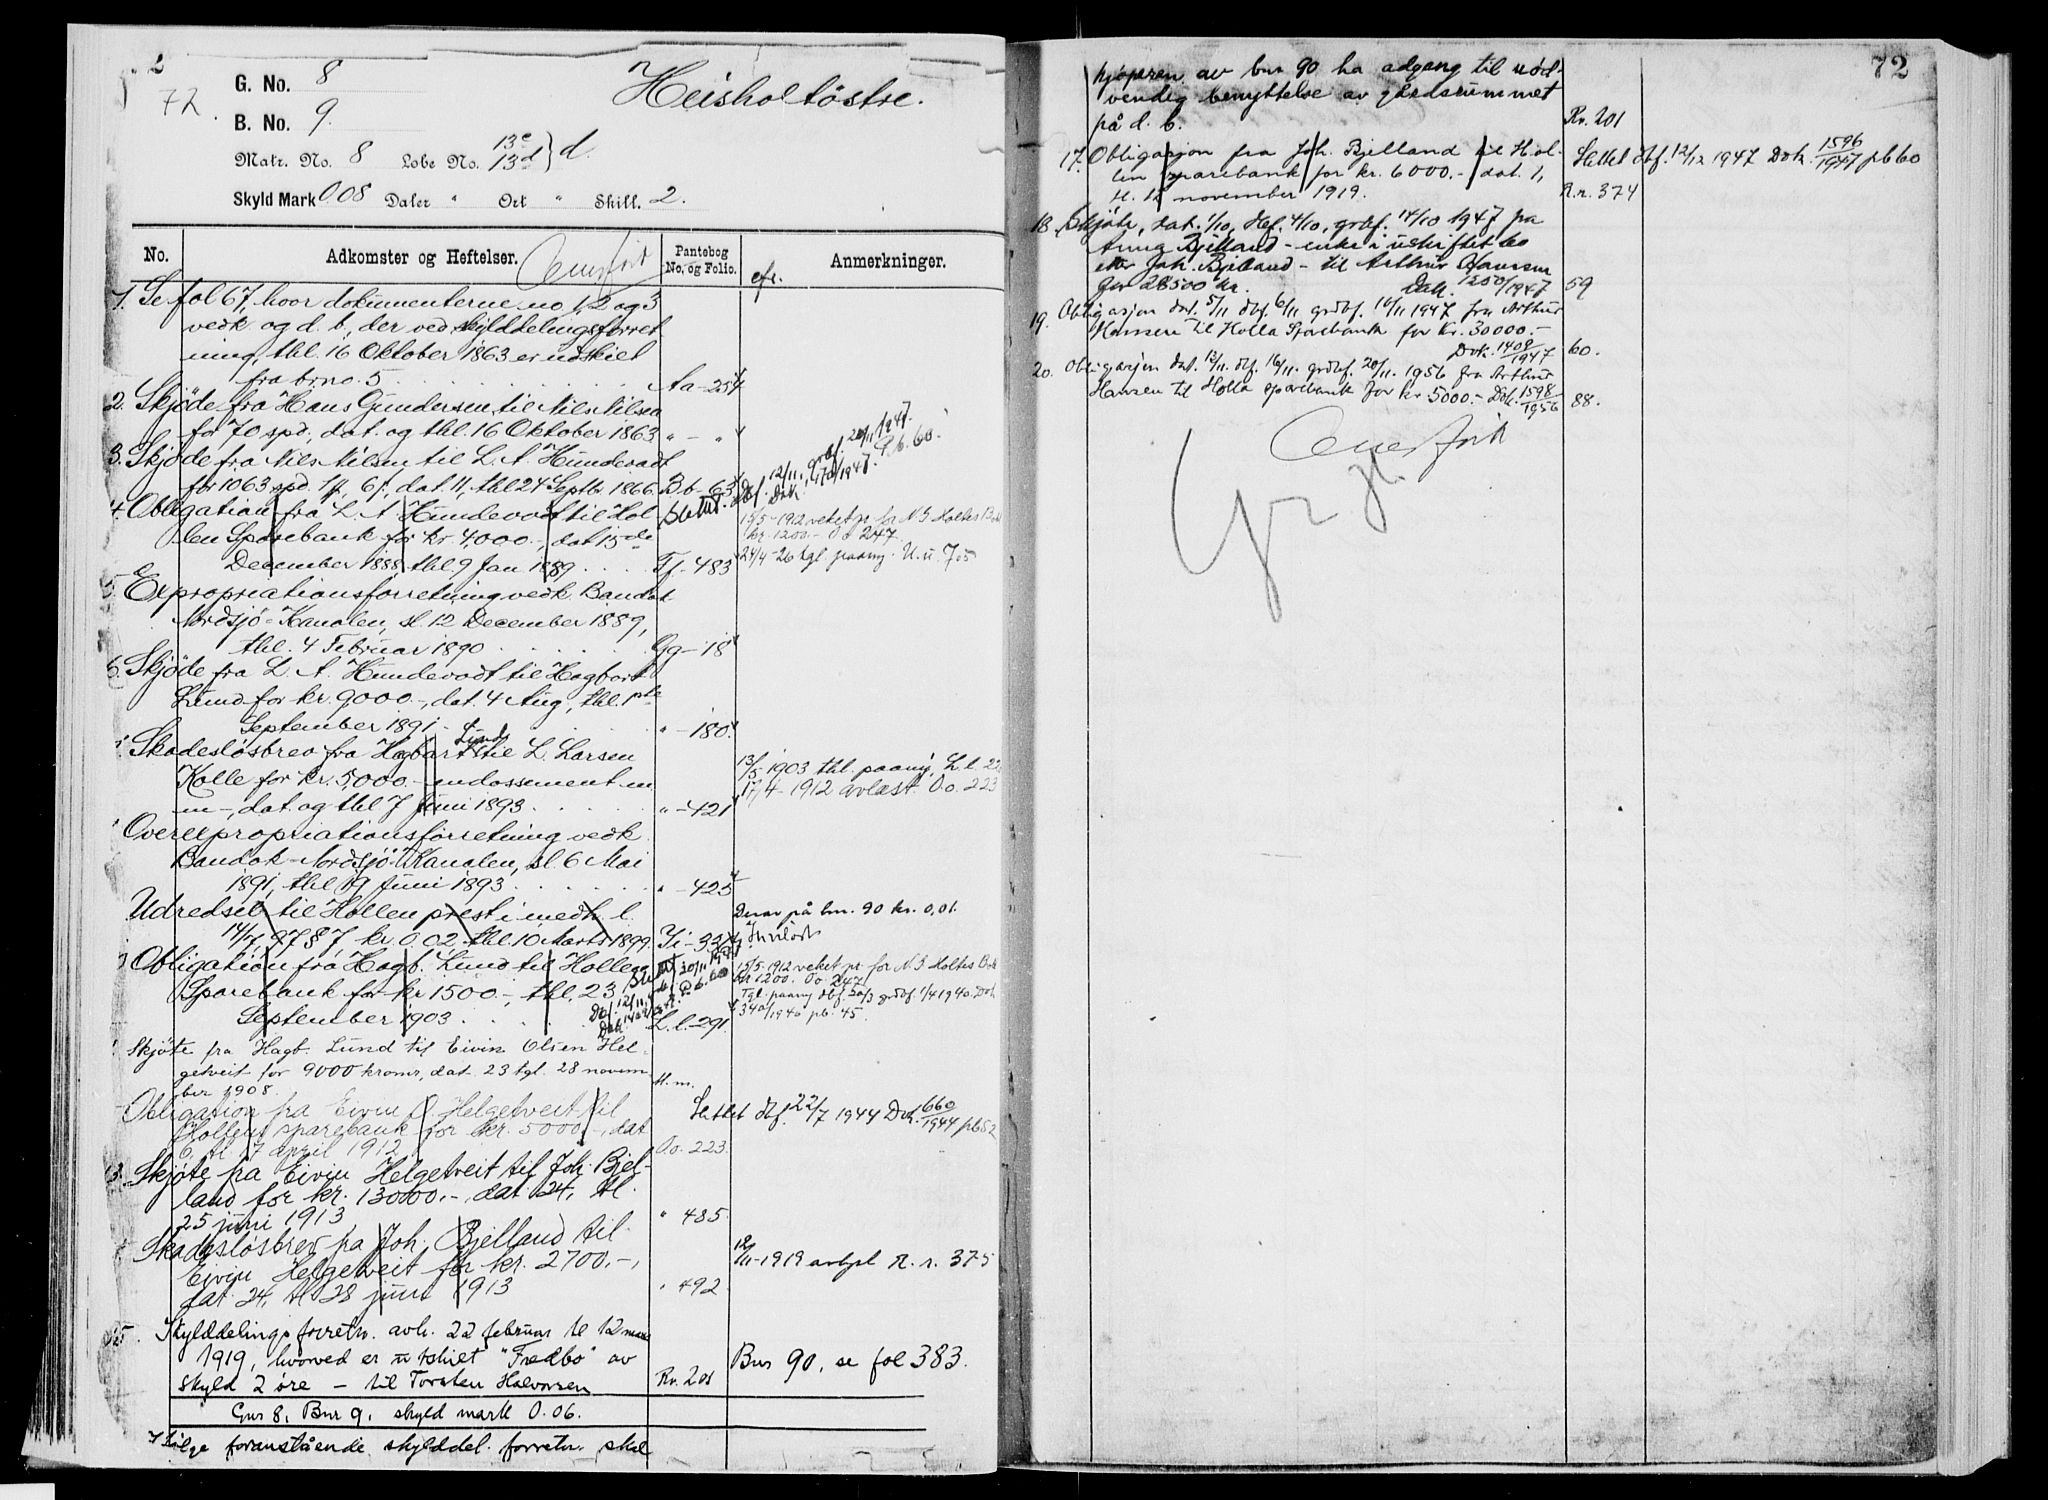 72.
G. No. 8
Heisholtöstre.
B. No. 9.
Matr. No. 8 Lobe No. 13c 13d } d.
Skyld Mark 0.08 Daler " Ort " Skill. 2.
No. Adkomster og Heftelser. Pantebog No. og Folio. cfr. Anmerkninger.
Overført
1. Se fol 67, hvor dokumenterne no 1, 2 og 3
vedk og d. b, der ved skylddelingsforret
ning, thl. 16 Oktober 1863 er udskilt
fra br.no. 5 Aa-254
2. Skjöde fra Hans Gundersen til Nils Nilsen
for 70 spd., dat. og thl. 16 Oktober 1863 " - "
3. Skjöde fra Nils Nilsen til L. A. Hundevadt
for 1063 spd. 1 , 6 , dat. 11, thl 24 Septbr 1866. B.b-63
Slettet. Dbf. 12/11, grdbf. 20/11 1947.
Dok. 1470/1947. P.b. 60.
4. Obligation fra L. A. Hundevadt til Hol
len Sparebank for kr 4,000.-, dat 15de
December 1888, thl. 9 Jan 1889 Ff-483
15/5-1912 veket pr. for N. S. Holtes B
kr. 1200.- Oo 247.
24/4-26 tgl paang. U.u. 705
5. Expropriationsforretning vedk. Bandak
Nordsjö-Kanalen, sl. 12 December 1889,
thl. 4 Februar 1890 Gg-18
6. Skjöde fra L. A. Hundevadt til Hagbart
Lund for kr. 9000.-, dat. 4 Aug, thl. 1ste
September 1891 " -180
Skadeslösbrev fra Hagbart Lund til L. Larsen
Kolle for kr. 5,000.- endossement m
m-, dat. og thl 7 Juni 1893 " -421
13/5 1903 thl. paang, L.l. 22
17/4-1912 avlæst Oo. 223
Overexpropriationsforretning vedk.
Bandak-Nordsjö Kanalen, sl. 6 Mai
1891, thl 19 Juni 1893 " -425
Udredsel til Hollen prest i medh. l.
14/7, 97 § 7, kr. 0.02. thl. 10 Marts 1899. Ii-331
Derav på bnr. 90 kr. 0,01.
Innløst
Obligation fra Hagb. Lund til Hollen
Sparebank for kr 1500.-, thl. 23
September 1903 L.l.-291
15/5-1912 veket pr. for N S Holtes B
kr 1200. Oo. 247
Tgl. paang dbf. 30/3 grdbf. 1/4 1940. Dok
340/1940 pb. 45.
Skjöte fra Hagb. Lund til Eivin Olsen Hel-
getveit for 9000 kroner, dat. 23 tgl. 28 novem
ber 1908.
Obligation fra Eivin O. Helgetveit til
Hollens sparebank for kr. 5000.-, dat
6, tl 17 april 1912 Oo. 223.
Slettet dbf. 22/7 1944 Dok. 660/1944 pb 52
13. Skjöte fra Eivin Helgetveit til Joh. Bjel-
land for kr. 13000.-, dat. 24, tl.
25 juni 1913 " 485.
Skadeslösbrev fra Joh. Bjelland til
Eivin Helgetveit for kr. 2700.-,
dat. 24, tl 28 juni 1913 " 492
12/11-1919 avlyst R. r. 375
15. Skylddelingsforretn. avh. 22 februar tl 12 mars
1919, hvorved er utskilt "Fredbo" av
skyld 2 öre - til Torsten Halvorsen Rr. 201
Bnr 90, se fol 383.
Gnr 8, Bnr 9, skyld mark 0.06.
Ifölge foranstående skylddel. forretn. skal
72
kjöperen av bnr 90 ha adgang til nöd-
vendig benyttelse av gårdsrummet
på d. b. Rr. 201
17. Obligasjon fra Joh. Bjelland til Hol-
len sparebank for kr. 6000.- dat. 1,
tl. 12 november 1919. R.r. 374
Slettet dbf. 12/12 1947 Dok. 1596/1947 pb 60
18. Skjöte, dat. 1/10, dbf. 4/10, grdbf. 14/10 1947 fra
Anna Bjelland - enke i uskiftet bo
etter Joh. Bjelland - til Arthur Hansen
for 28500 kr. Dok. 1250/1947 59
19. Obligasjon dat. 5/11 dbf. 6/11 grdbf. 10/11 1947 fra Arthur
Hansen til Holla Sparebank for kr. 30000.-
Dok. 1409/1947 60.
20. Obligasjon dat. 12/11. dbf. 16/11. grdbf. 20/11. 1956 fra Arthur
Hansen til Holla sparebank for kr 5000.- Dok. 1598/1956 88.
Overført